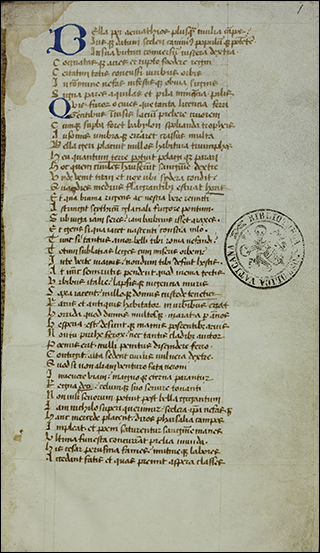 Bella per emathios plusqʒ ciuilia campos
Iusqʒ datum sceleri canimus populūqʒ potētē
In sua uictrici conuersum uiscera dextra
Cognatasqʒ acies et rupto federe regni
Certatum totis concussi uiribus orbis
In commune nefas infestisqʒ obuia signis
Signa pares aquilas et pila minantia pilis
Quis furor o ciues que tanta licentia ferri
Gentibus inuisis latium prebere cruorem
Cumqʒ supba foret babylon spolianda tropheis
Ausonijs umbraqʒ erraret crassus inulta
Bella geri placuit nullos habitura triumphos
Heu quantum terre potuit pelagiqʒ parari
Hoc quem ciuiles hauserunt sanguine dextre
Unde uenit titan et nox ubi sidera condit
Quaqʒ dies medius flagrantibus estuat horis
Et qua bruma rigens ac nescia uere remitti
Astringit scythicum glaciali frigore pontum
Sub iuga iam seres iam barbarus isset araxes
Et gens si qua iacet nascenti conscia nilo
Tunc si tantus amor belli tibi roma nefandi
Totum sub latias leges cum miseris orbem
In te uerte manus nondum tibi defuit hostis
At nunc semirutis pendent quod menia tectis
Urbibus italie lapsisqʒ ingentia muris
Saxa iacent nulloqʒ domus custode tenentur
Rarus et antiquis habitator in urbibus errat
Horrida quod dumis multosqʒ inarata p annos
Hesperia est desuntqʒ manus poscentibus aruis
Non tu pirrhe ferox nec tantis cladibus auctor
Penus erit nulli penitus discindere ferro
Contigit alta sedent ciuilis uulnera dextre
Quod si non aliam uenturo fata neroni
Inuenere uiam magnoqʒ eterna parantur
Regna deis celumqʒ suo seruire tonanti
Non nisi seuorum potuit post bella gigantum
Iam nichil o superi querimur scelera ipa nefasqʒ
Hac mercede placent diros pharsalia campos
Impleat et peni saturentur sanguine manes
Ultima funesta concurrant prelia munda
His cesar perusina fames mutineqʒ labores
Accedant fatis et quas premit aspera classes
BIBLIOTHECA APOSTOLICA VATICANA